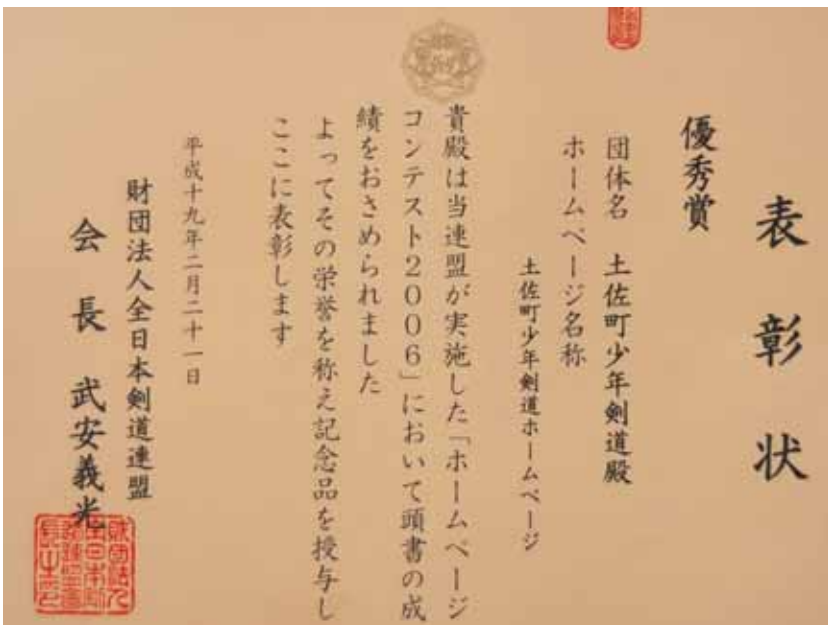 表彰状
優秀賞
団体名 土佐町少年剣道殿
ホームページ名称
土佐町少年剣道ホームページ
貴殿は当連盟が実施した「ホームページ
コンテスト2006」において頭書の成
績をおさめられました
よってその栄誉を称え記念品を授与し
ここに表彰します
平成十九年二月二十一日
財団法人全日本剣道連盟
会長 武安義光